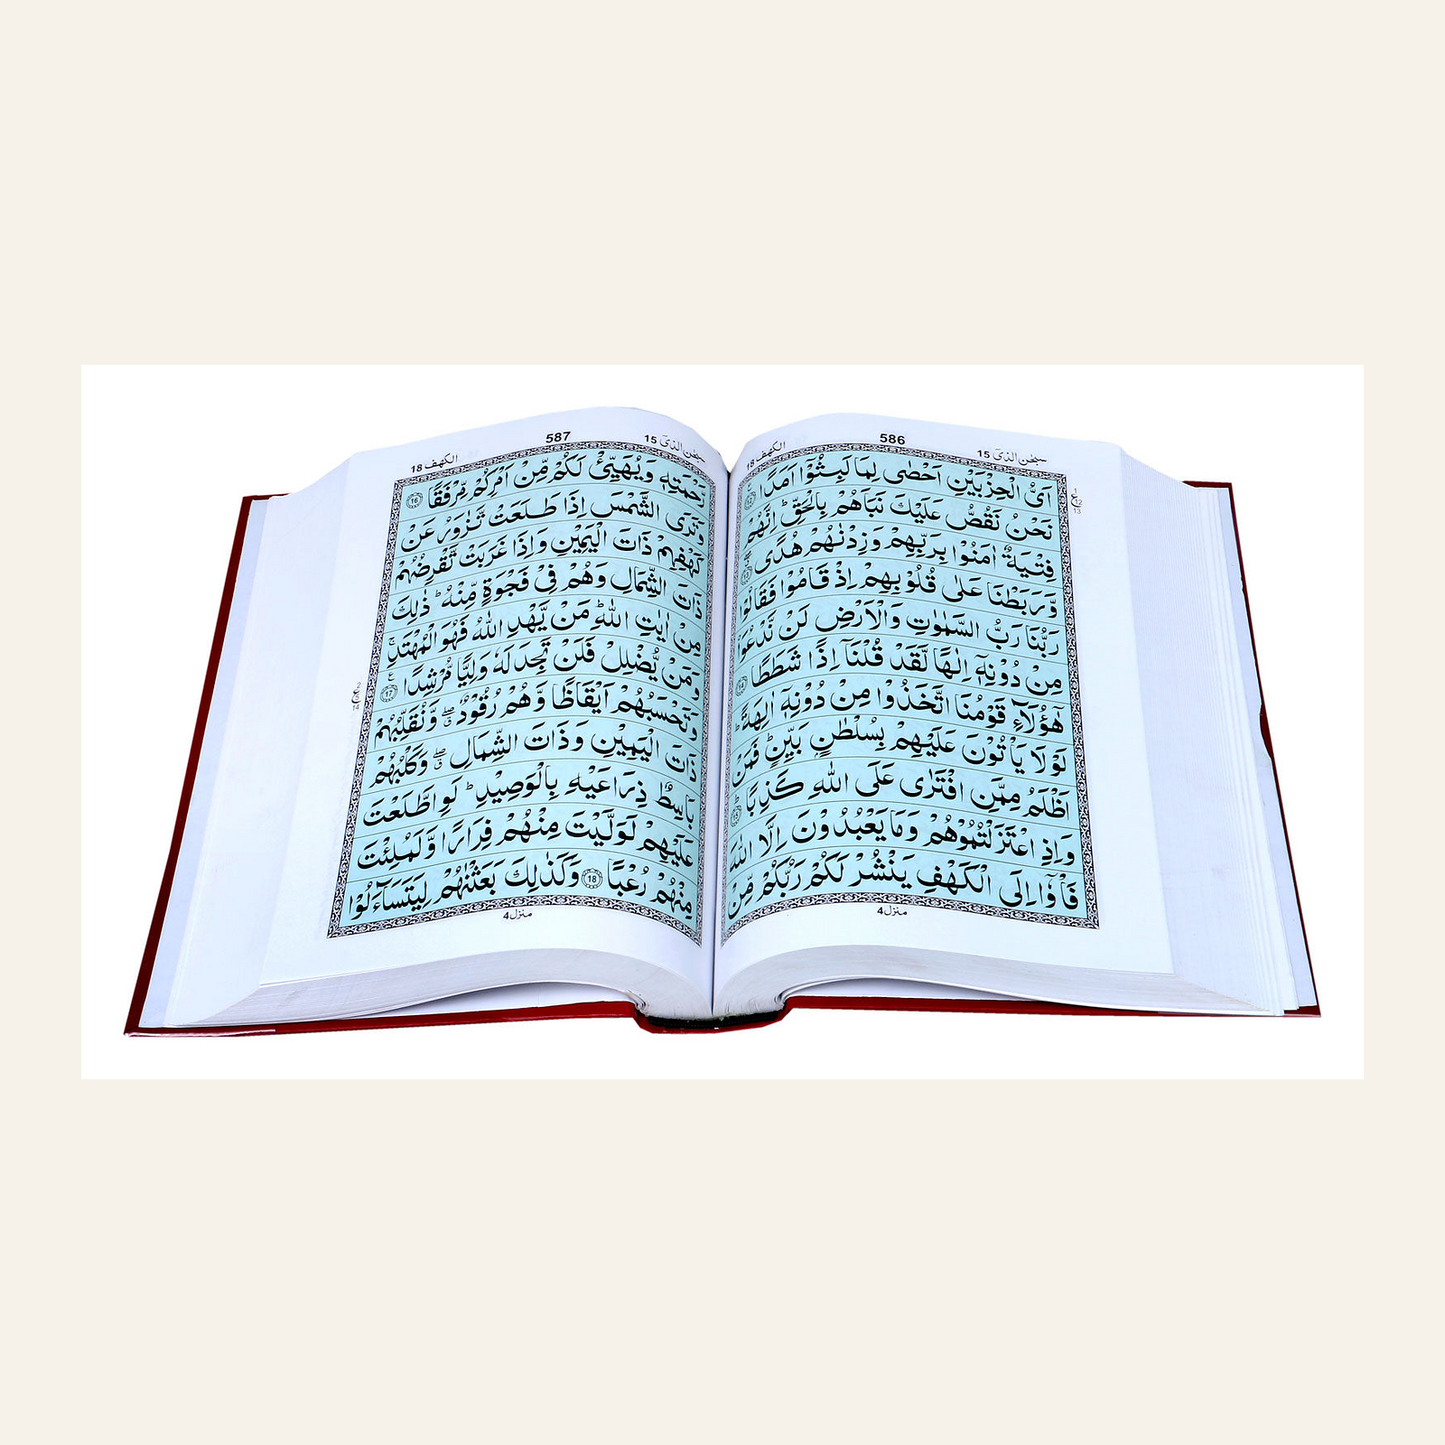 سبحٰن الذیٓ 15 586 الکهف 18
اَیُّ الْحِزْبَیْنِ اَحْصٰی لِمَا لَبِثُوْۤا اَمَدًا ﴿12﴾
نَحْنُ نَقُصُّ عَلَیْكَ نَبَاَهُمْ بِالْحَقِّ ؕ اِنَّهُمْ
فِتْیَةٌ اٰمَنُوْا بِرَبِّهِمْ وَزِدْنٰهُمْ هُدًی ﴿13﴾
وَّرَبَطْنَا عَلٰی قُلُوْبِهِمْ اِذْ قَامُوْا فَقَالُوْا
رَبُّنَا رَبُّ السَّمٰوٰتِ وَالْاَرْضِ لَنْ نَّدْعُوَا۠
مِنْ دُوْنِهٖۤ اِلٰهًا لَّقَدْ قُلْنَاۤ اِذًا شَطَطًا ﴿14﴾
هٰۤؤُلَآءِ قَوْمُنَا اتَّخَذُوْا مِنْ دُوْنِهٖۤ اٰلِهَةً ؕ
لَوْ لَا یَاْتُوْنَ عَلَیْهِمْ بِسُلْطٰنٍۭ بَیِّنٍ ؕ فَمَنْ
اَظْلَمُ مِمَّنِ افْتَرٰی عَلَی اللّٰهِ كَذِبًا ؕ ﴿15﴾
وَاِذِ اعْتَزَلْتُمُوْهُمْ وَمَا یَعْبُدُوْنَ اِلَّا اللّٰهَ
فَاْوٗۤا اِلَی الْكَهْفِ یَنْشُرْ لَكُمْ رَبُّكُمْ مِّنْ
منزل 4
سبحٰن الذیٓ 15 587 الکهف 18
رَّحْمَتِهٖ وَیُهَیِّئْ لَكُمْ مِّنْ اَمْرِكُمْ مِّرْفَقًا ﴿16﴾
وَتَرَی الشَّمْسَ اِذَا طَلَعَتْ تَّزٰوَرُ عَنْ
كَهْفِهِمْ ذَاتَ الْیَمِیْنِ وَاِذَا غَرَبَتْ تَّقْرِضُهُمْ
ذَاتَ الشِّمَالِ وَهُمْ فِیْ فَجْوَةٍ مِّنْهُ ؕ ذٰلِكَ
مِنْ اٰیٰتِ اللّٰهِ ؕ مَنْ یَّهْدِ اللّٰهُ فَهُوَ الْمُهْتَدِ ۚ
وَمَنْ یُّضْلِلْ فَلَنْ تَجِدَ لَهٗ وَلِیًّا مُّرْشِدًا ﴿17﴾
وَتَحْسَبُهُمْ اَیْقَاظًا وَّهُمْ رُقُوْدٌ ۖۗ وَّنُقَلِّبُهُمْ
ذَاتَ الْیَمِیْنِ وَذَاتَ الشِّمَالِ ۖۗ وَكَلْبُهُمْ
بَاسِطٌ ذِرَاعَیْهِ بِالْوَصِیْدِ ؕ لَوِ اطَّلَعْتَ
عَلَیْهِمْ لَوَلَّیْتَ مِنْهُمْ فِرَارًا وَّلَمُلِئْتَ
مِنْهُمْ رُعْبًا ﴿18﴾ وَكَذٰلِكَ بَعَثْنٰهُمْ لِیَتَسَآءَلُوْا
منزل 4